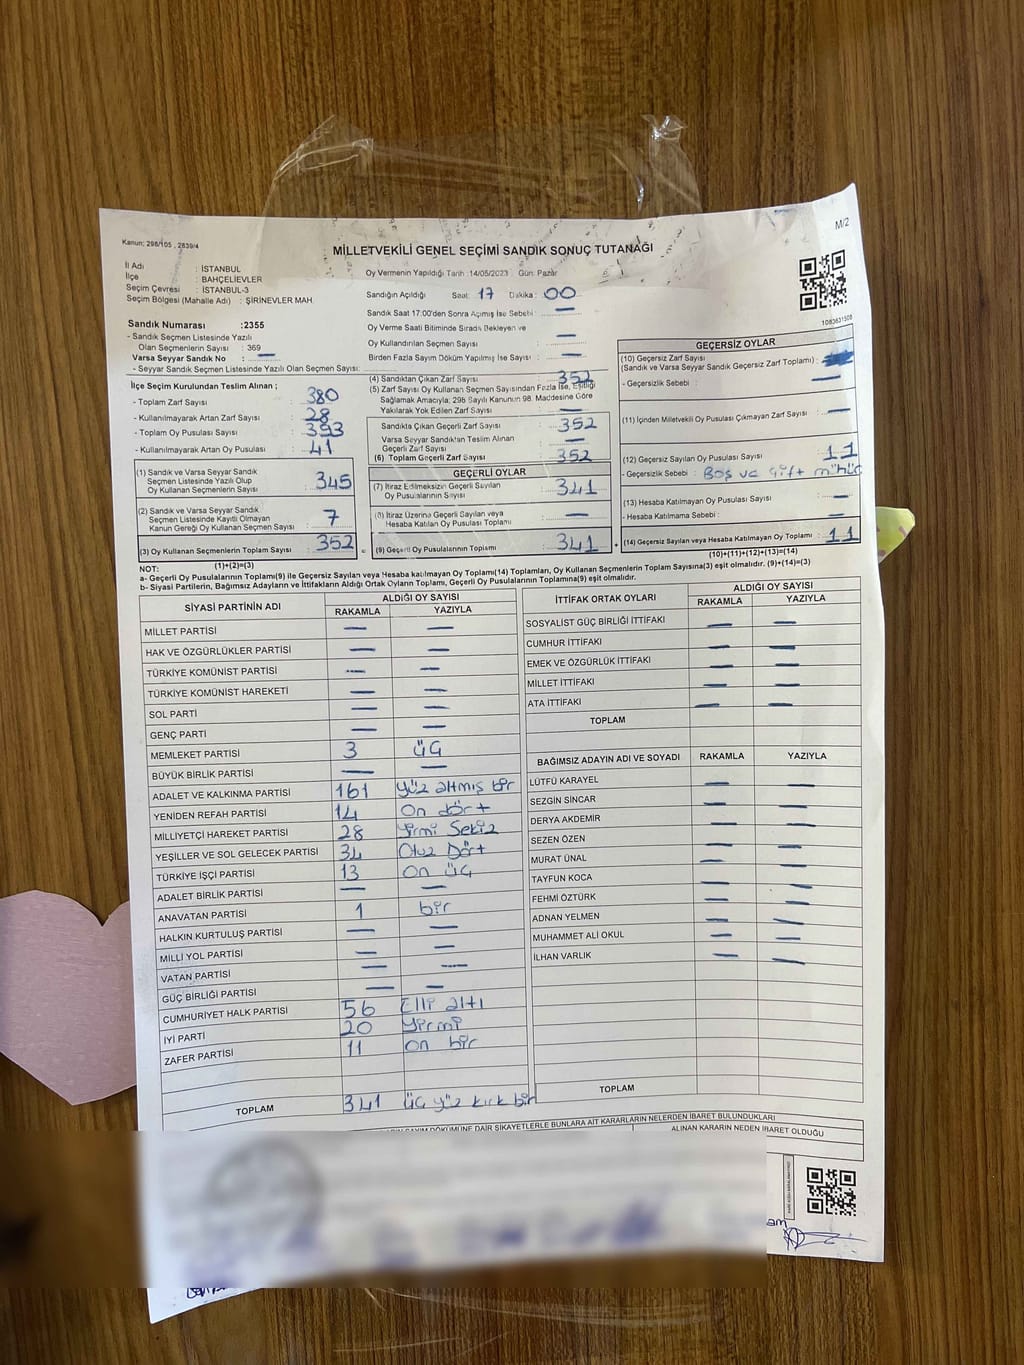 Kanun; 298/105 , 2839/4
M/2
MİLLETVEKİLİ GENEL SEÇİMİ SANDIK SONUÇ TUTANAĞI
İl Adı : İSTANBUL
İlçe : BAHÇELİEVLER
Seçim Çevresi : İSTANBUL-3
Seçim Bölgesi (Mahalle Adı) : ŞİRİNEVLER MAH.
Oy Vermenin Yapıldığı Tarih :14/05/2023 Gün: Pazar
Sandığın Açıldığı Saat: 17 Dakika: 00
Sandık Saat 17:00'den Sonra Açılmış İse Sebebi : —
Oy Verme Saati Bitiminde Sırada Bekleyen ve
Oy Kullandırılan Seçmen Sayısı : —
Birden Fazla Sayım Döküm Yapılmış İse Sayısı : —
1083631508
Sandık Numarası :2355
- Sandık Seçmen Listesinde Yazılı
Olan Seçmenlerin Sayısı : 369
Varsa Seyyar Sandık No : —
- Seyyar Sandık Seçmen Listesinde Yazılı Olan Seçmen Sayısı:
İlçe Seçim Kurulundan Teslim Alınan ;
- Toplam Zarf Sayısı : 380
- Kullanılmayarak Artan Zarf Sayısı : 28
- Toplam Oy Pusulası Sayısı : 393
- Kullanılmayarak Artan Oy Pusulası : 41
(1) Sandık ve Varsa Seyyar Sandık
Seçmen Listesinde Yazılı Olup
Oy Kullanan Seçmenlerin Sayısı : 345
(2) Sandık ve Varsa Seyyar Sandık
Seçmen Listesinde Kayıtlı Olmayan
Kanun Gereği Oy Kullanan Seçmen Sayısı : 7
(3) Oy Kullanan Seçmenlerin Toplam Sayısı : 352
(1)+(2)=(3)
(4) Sandıktan Çıkan Zarf Sayısı : 352
(5) Zarf Sayısı Oy Kullanan Seçmen Sayısından Fazla İse, Eşitliği
Sağlamak Amacıyla; 298 Sayılı Kanunun 98. Maddesine Göre
Yakılarak Yok Edilen Zarf Sayısı : —
Sandıkta Çıkan Geçerli Zarf Sayısı : 352
Varsa Seyyar Sandıktan Teslim Alınan
Geçerli Zarf Sayısı : —
(6) Toplam Geçerli Zarf Sayısı : 352
GEÇERLİ OYLAR
(7) İtiraz Edilmeksizin Geçerli Sayılan
Oy Pusulalarının Sayısı : 341
(8) İtiraz Üzerine Geçerli Sayılan veya
Hesaba Katılan Oy Pusulası Toplamı : —
(9) Geçerli Oy Pusulalarının Toplamı : 341
GEÇERSİZ OYLAR
(10) Geçersiz Zarf Sayısı
(Sandık ve Varsa Seyyar Sandık Geçersiz Zarf Toplamı) :
- Geçersizlik Sebebi : —
(11) İçinden Milletvekili Oy Pusulası Çıkmayan Zarf Sayısı : —
(12) Geçersiz Sayılan Oy Pusulası Sayısı : 11
- Geçersizlik Sebebi : Boş ve Çift mühür
(13) Hesaba Katılmayan Oy Pusulası Sayısı : —
- Hesaba Katılmama Sebebi : —
(14) Geçersiz Sayılan veya Hesaba Katılmayan Oy Toplamı : 11
(10)+(11)+(12)+(13)=(14)
NOT:
a- Geçerli Oy Pusulaları Toplamı(9) ile Geçersiz Sayılan veya Hesaba katılmayan Oy Toplamı(14) Toplamları, Oy Kullanan Seçmenlerin Toplam Sayısına(3) eşit olmalıdır. (9)+(14)=(3)
b- Siyasi Partilerin, Bağımsız Adayların ve İttifakların Aldığı Ortak Oyların Toplamı, Geçerli Oy Pusulalarının Toplamına(9) eşit olmalıdır.
SİYASİ PARTİNİN ADI ALDIĞI OY SAYISI
RAKAMLA YAZIYLA
MİLLET PARTİSİ — —
HAK VE ÖZGÜRLÜKLER PARTİSİ — —
TÜRKİYE KOMÜNİST PARTİSİ — —
TÜRKİYE KOMÜNİST HAREKETİ — —
SOL PARTİ — —
GENÇ PARTİ — —
MEMLEKET PARTİSİ 3 üç
BÜYÜK BİRLİK PARTİSİ — —
ADALET VE KALKINMA PARTİSİ 161 yüz altmış bir
YENİDEN REFAH PARTİSİ 14 On dört
MİLLİYETÇİ HAREKET PARTİSİ 28 yirmi Sekiz
YEŞİLLER VE SOL GELECEK PARTİSİ 34 Otuz Dört
TÜRKİYE İŞÇİ PARTİSİ 13 on üç
ADALET BİRLİK PARTİSİ — —
ANAVATAN PARTİSİ 1 bir
HALKIN KURTULUŞ PARTİSİ — —
MİLLİ YOL PARTİSİ — —
VATAN PARTİSİ — —
GÜÇ BİRLİĞİ PARTİSİ — —
CUMHURİYET HALK PARTİSİ 56 Elli altı
İYİ PARTİ 20 yirmi
ZAFER PARTİSİ 11 on bir
TOPLAM 341 üç yüz kırk bir
İTTİFAK ORTAK OYLARI ALDIĞI OY SAYISI
RAKAMLA YAZIYLA
SOSYALİST GÜÇ BİRLİĞİ İTTİFAKI — —
CUMHUR İTTİFAKI — —
EMEK VE ÖZGÜRLÜK İTTİFAKI — —
MİLLET İTTİFAKI — —
ATA İTTİFAKI — —
TOPLAM
BAĞIMSIZ ADAYIN ADI VE SOYADI RAKAMLA YAZIYLA
LÜTFÜ KARAYEL — —
SEZGİN SİNCAR — —
DERYA AKDEMİR — —
SEZEN ÖZEN — —
MURAT ÜNAL — —
TAYFUN KOCA — —
FEHMİ ÖZTÜRK — —
ADNAN YELMEN — —
MUHAMMET ALİ OKUL — —
İLHAN VARLIK — —
TOPLAM
SAYIM DÖKÜMÜNE DAİR ŞİKAYETLERLE BUNLARA AİT KARARLARIN NELERDEN İBARET BULUNDUKLARI
ALINAN KARARIN NEDEN İBARET OLDUĞU